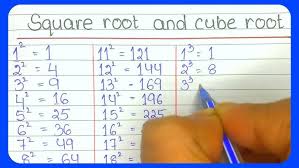 Square root and cube root
1² = 1
2² = 4
3² = 9
4² = 16
5² = 25
6² = 36
7² = 49
8² = 64
11² = 121
12² = 144
13² - 169
14² - 196
15² = 225
16²
17²
18²
1³ = 1
2³ = 8
3³